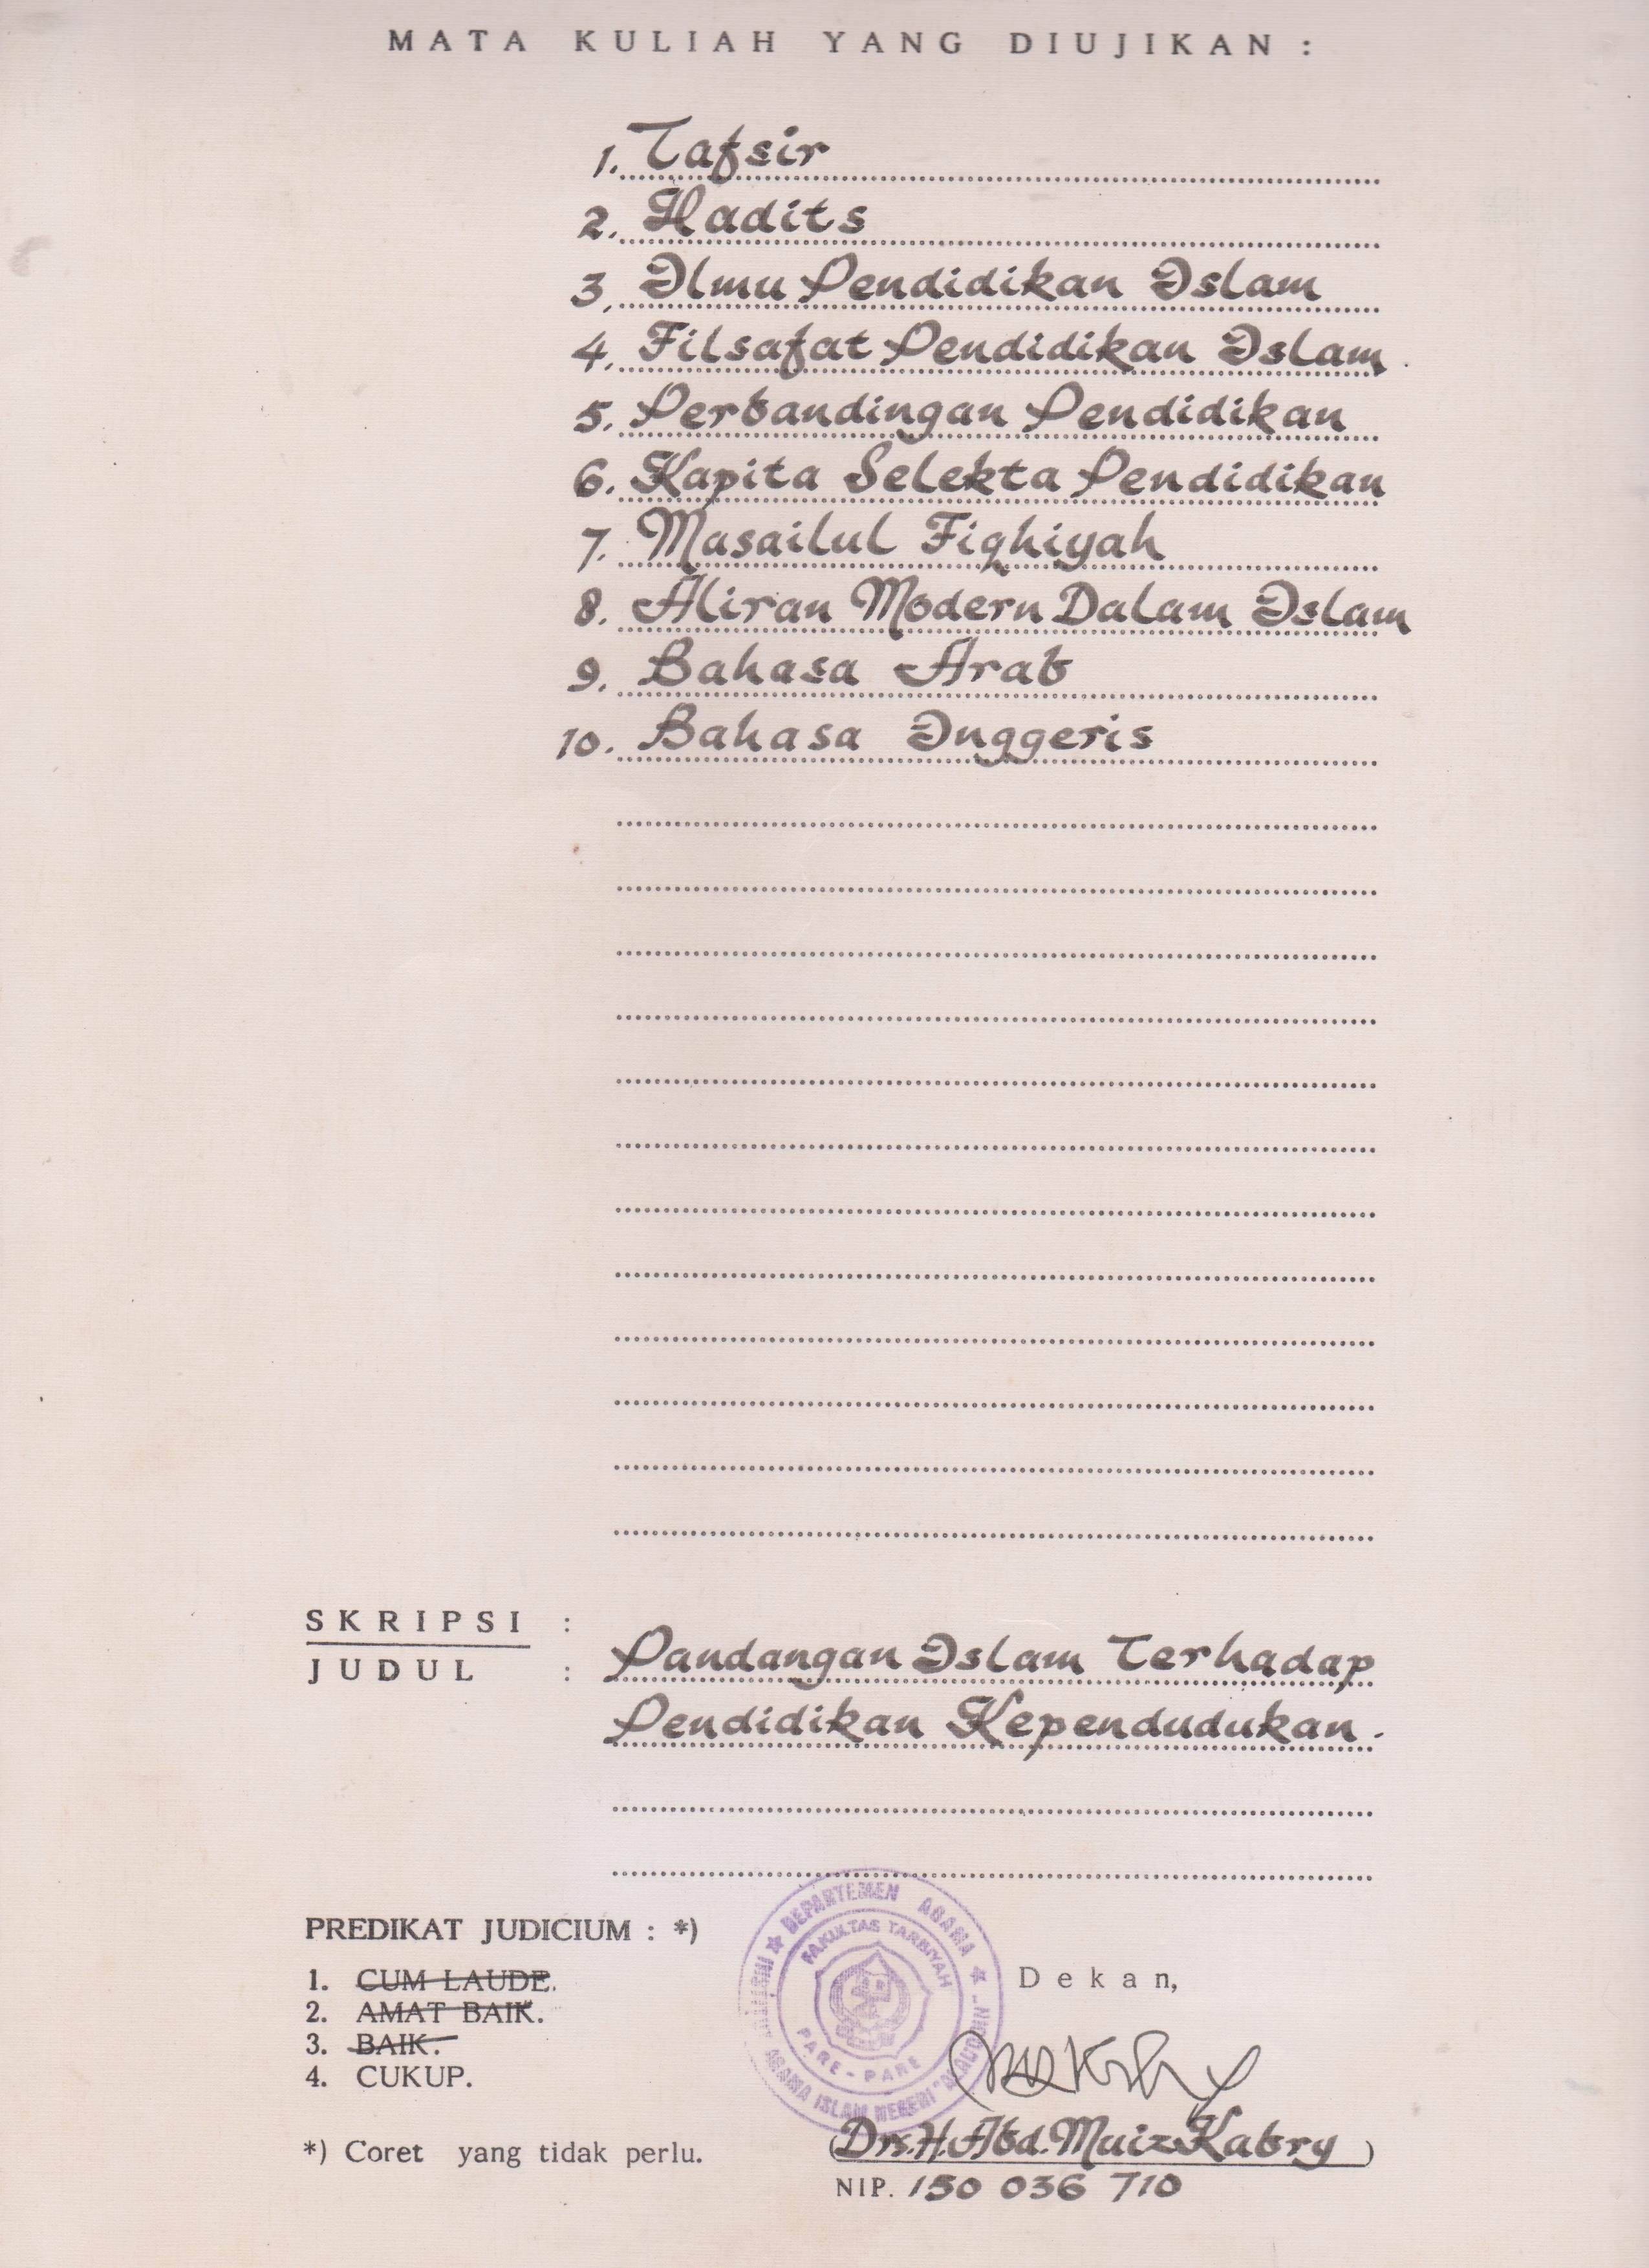 MATA KULIAH YANG DIUJIKAN :
1. Tafsir
2. Hadits
3. Ilmu Pendidikan Islam
4. Filsafat Pendidikan Islam.
5. Perbandingan Pendidikan
6. Kapita Selekta Pendidikan
7. Masailul Fiqhiyah
8. Aliran Modern Dalam Islam
9. Bahasa Arab
10. Bahasa Inggeris
SKRIPSI :
JUDUL : Pandangan Islam Terhadap
Pendidikan Kependudukan.
PREDIKAT JUDICIUM : *)
1. CUM LAUDE.
2. AMAT BAIK.
3. BAIK.
4. CUKUP.
*) Coret yang tidak perlu.
DEPARTEMEN AGAMA
FAKULTAS TARBIYAH
PARE-PARE
AGAMA ISLAM NEGERI "ALAUDDIN"
Dekan,
(Drs.H.Abd.Muiz Kabry)
NIP. 150 036 710